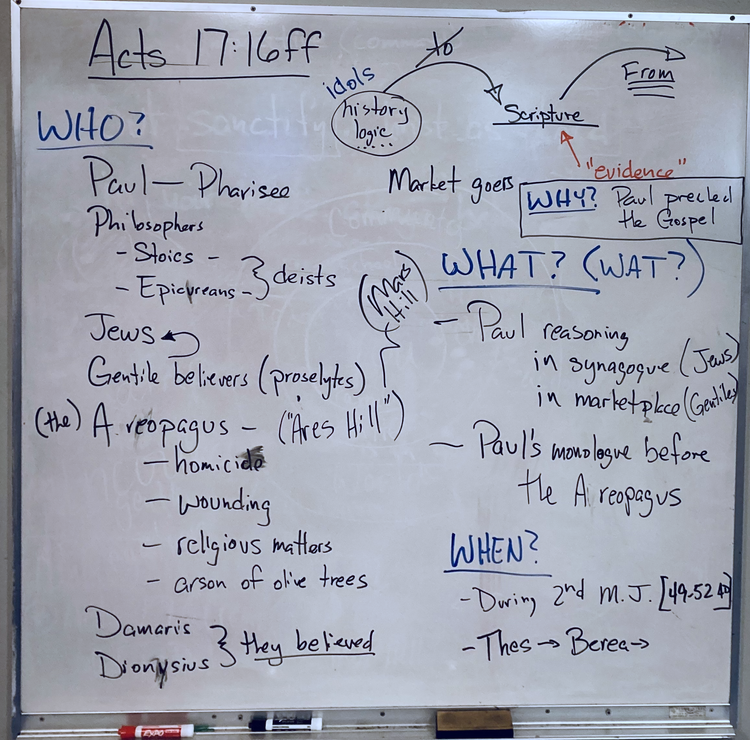 Acts 17:16ff
to
From
idols
history
logic
Scripture
"evidence"
WHO?
Paul — Pharisee
Market goers
WHY? Paul preched
the Gospel
Philosophers
- Stoics -
- Epicureans -
} deists
WHAT? (WAT?)
(Mars
Hill)
Jews
Gentile believers (proselytes)
(the) Areopagus - ("Ares Hill")
— homicide
— wounding
— religious matters
— arson of olive trees
Damaris
Dionysius
} they believed
— Paul reasoning
in synagogue (Jews)
in marketplace (Gentiles)
— Paul's monologue before
the Areopagus
WHEN?
- During 2nd M.J. [49-52 AD]
- Thes → Berea →
EXPO